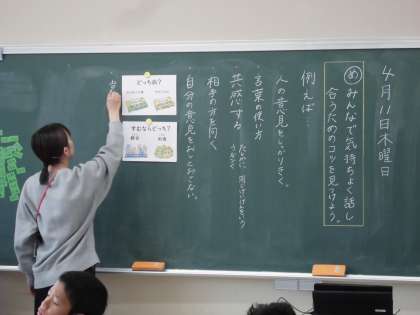 4月11日木曜日
め みんなで気持ちよく話し
合うためのコツを見つけよう。
例えば…
人の意見をしっかりきく。
・言葉の使い方
・共感する
うなずく
・相手の方を向く
・自分の意見をおしとおさない。
どっち派?
すむならどっち?